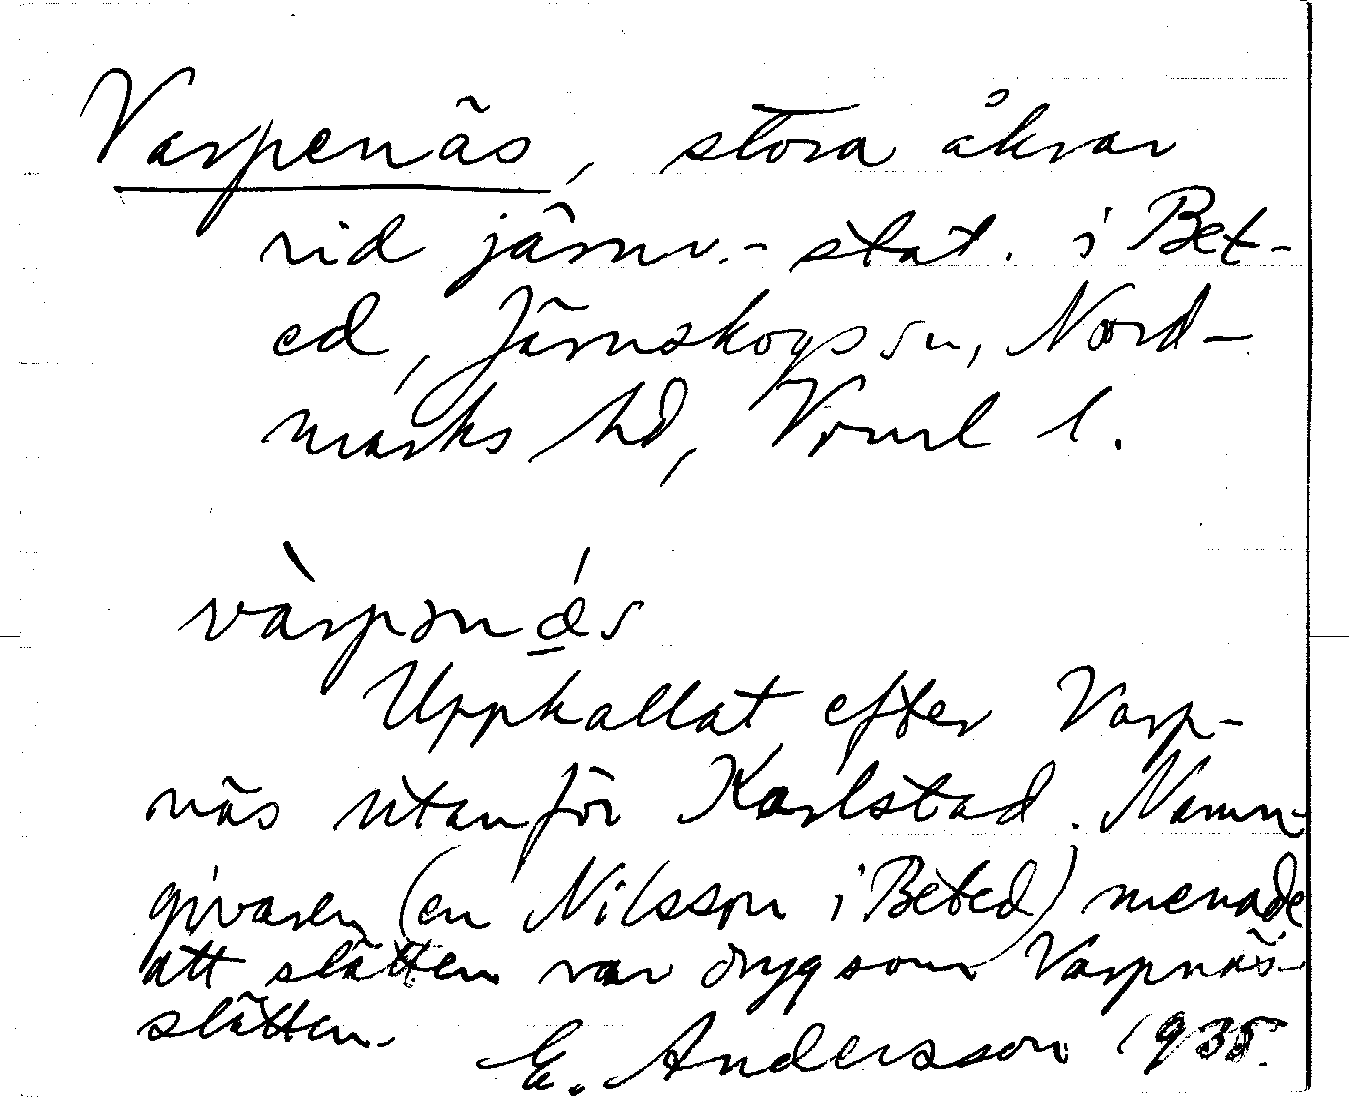 Varpenäs, stora åkrar
vid järnv.-stat. i Bet-
ed, Järnskogs sn, Nord-
marks hd, Vrml l.
vàrpənǽs
Uppkallat efter Varp-
näs utanför Karlstad. Namn-
givaren (en Nilsson i Beted) menade
att slätten var dryg som Varpnäs-
slätten.
E. Andersson 1935.